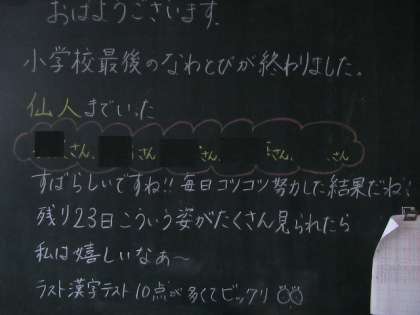 おはようございます.
小学校最後のなわとびが終わりました。
仙人までいった
さん、 さん さん、 さん、 さん
すばらしいですね!! 毎日コツコツ努力した結果だね!!
残り23日こういう姿がたくさん見られたら
私は嬉しいなぁ～
ラスト漢字テスト10点が多くてビックリ